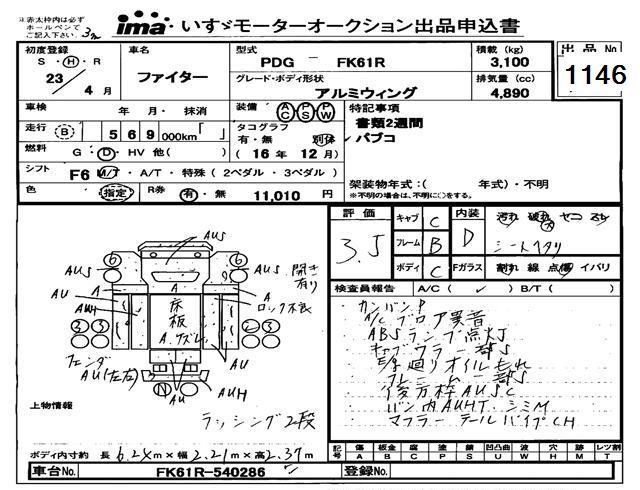 ※赤太枠内は必ず
ホールペンで
ご記入下さい。
ima いすゞモーターオークション出品申込書
初度登録 車名 型式 積載 (kg) 出品No
S・H・R PDG － FK61R 3,100
23 / 4 月 ファイター グレード・ボディ形状 排気量 (cc) 1146
アルミウィング 4,890
車検 年・月・抹消 装備 AC PS PW 特記事項
走行 (B) 569 000km「 」 タコグラフ 書類2週間
有・無 別体 パブコ
燃料 G・D・HV 他( ) (16年 12月)
シフト F6 M/T・A/T・特殊 (2ペダル・3ペダル)
架装物年式:( 年式)・不明
色 指定 R券 有・無 11,010 円
※不明の場合は、不明に○をする。
評価 キャブ C 内装 汚れ 破れ ヤニ スレ
3.5 フレーム B D シートヘタリ
ボディ C Fガラス 割れ 線 点傷 イバリ
検査員報告 A/C (✓) B/T ( )
カンバンP
A/C ブロア異音
ABSランプ点灯
キャブフラー部S
E/g廻りオイルもれ
フレーム一部S
後方枠AUSC
バン内AUHT.シミM
マフラー テールパイプCH
AUS
AUS
開き有り
AU
A
A
ロック不良
AUH
床板
A.ナズレ
3 3
2 3
フェンダ
AU(左右)
N
AU
AUH
上物情報
ラッシング2段
ボディ内寸約 長 6.24m×幅 2.21m×高 2.37m
記号 傷 板金 腐 塗 錆 凹凸曲 波 穴 跡 レツ割
A B C P S U W H M T
車台No. FK61R-540286 登録No.